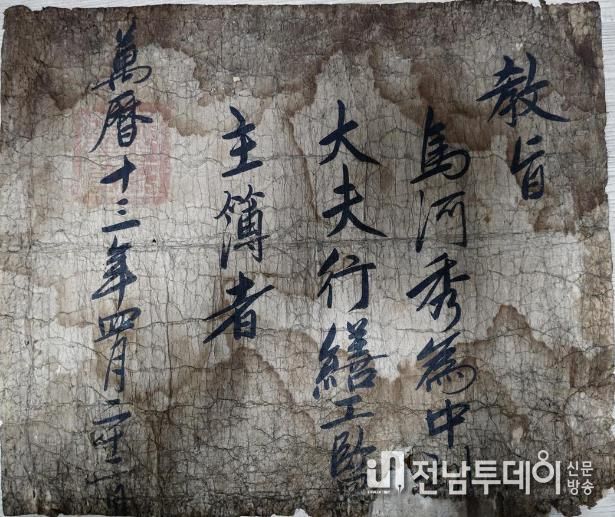 敎旨
馬河秀爲中
大夫行繕工監
主簿者
萬曆十三年四月二十日
전남투데이 신문
방송